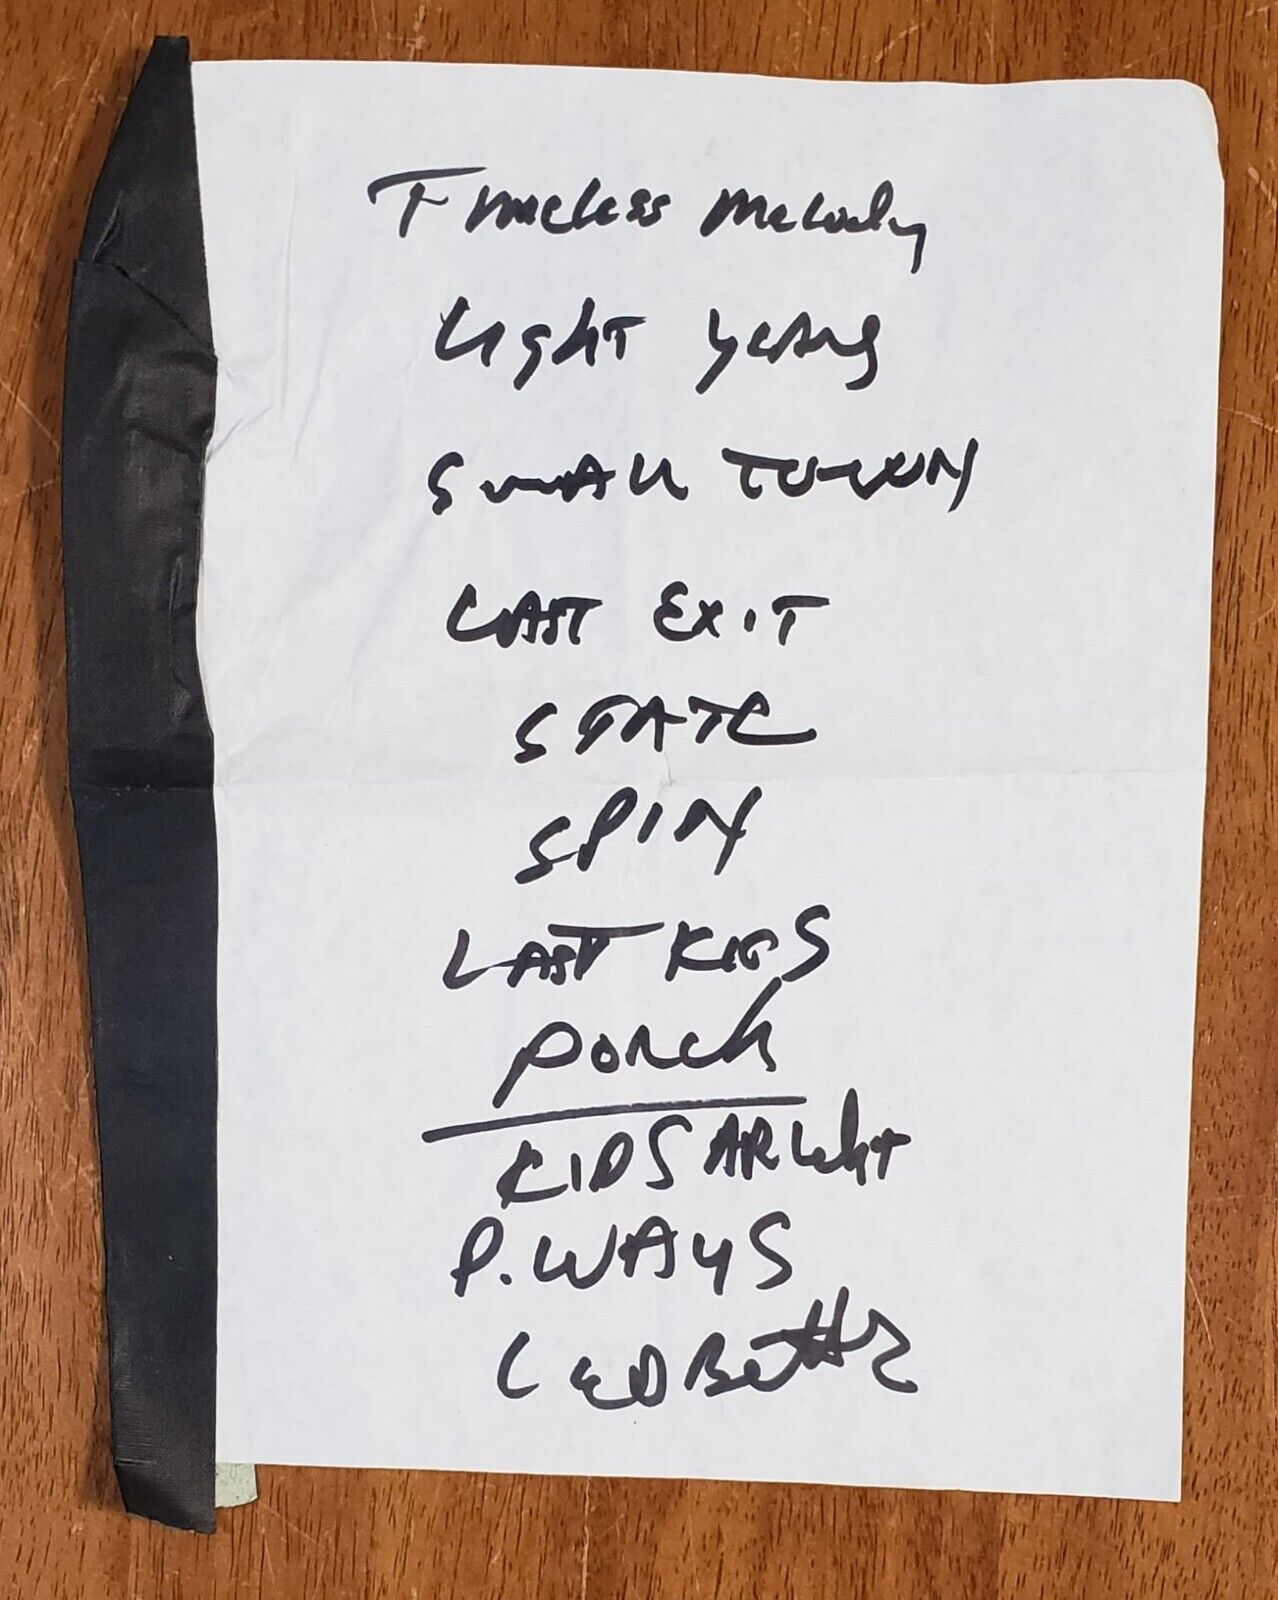 Timeless Melody
Light years
SMALL TOWN
LAST EXIT
STATE
SPIN
LAST KISS
Porch
KIDS ARIGHT
P. WAYS
LEDBetter